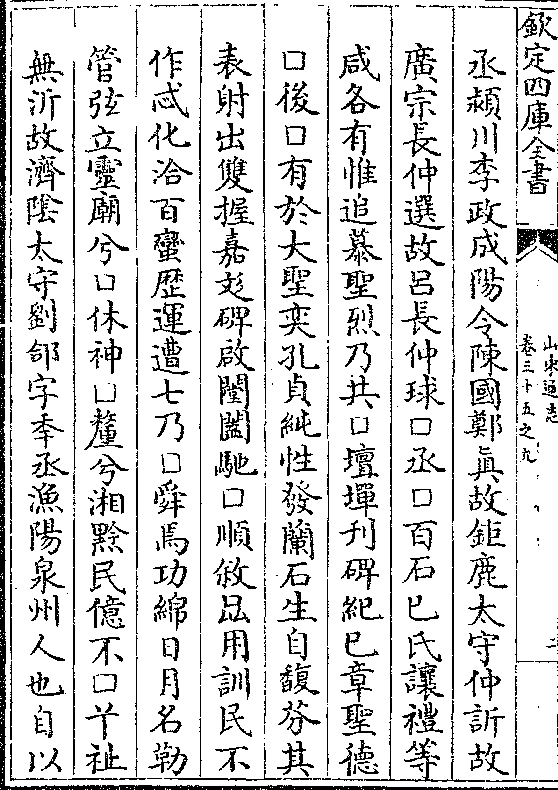 欽定四庫全書
山東通志
卷三十五之九
丞潁川李政成陽令陳國鄭真故鉅鹿太守仲訢故
廣宗長仲選故吕長仲球口丞口百石巳氏讓禮等
咸各有惟追慕聖烈乃共口壇墠刋碑紀巳章聖德
口後口有於大聖奕孔貞純性發蘭石生自馥芬其
表射出雙握嘉彣碑啟閶闔馳口順敘㕥用訓民不
作忒化洽百蠻歴運遭七乃口舜焉功綿日月名勒
管弦立靈廟兮口休神口釐兮湘黔民億不口丫祉
無沂故濟陰太守劉郃字季丞漁陽泉州人也自以